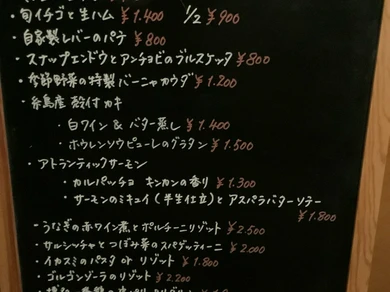 ・旬イチゴと生ハム ¥1.400 1/2 ¥900
・自家製レバーのパテ ¥800
・スナップエンドウとアンチョビのブルスケッタ ¥800
・季節野菜の特製バーニャカウダ ¥1.200
・糸島産 殻付カキ
・白ワイン & バター蒸し ¥1.400
・ホウレンソウピューレのグラタン ¥1.500
・アトランティックサーモン
・カルパッチョ キンカンの香り ¥1.300
・サーモンのミキュイ(半生仕立)とアスパラバターソテー
¥1.800
・うなぎの赤ワイン煮とポルチーニリゾット ¥2.500
・サルシッチャとつぼみ菜のスパゲッティーニ ¥2.000
・イカスミのパスタ or リゾット ¥1.800
・ゴルゴンゾーラのリゾット ¥2.200